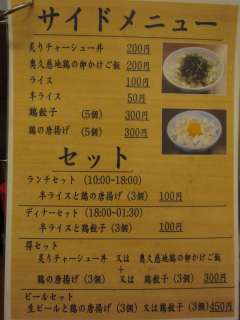 サイドメニュー
炙りチャーシュー丼 200円
奥久慈地鶏の卵かけご飯 200円
ライス 100円
半ライス 50円
鶏餃子 (5個) 300円
鶏の唐揚げ (5個) 300円
セット
ランチセット (10:00~18:00)
半ライスと鶏の唐揚げ(3個) 100円
ディナーセット (18:00~01:30)
半ライスと鶏餃子(3個) 100円
得セット
炙りチャーシュー丼 又は 奥久慈地鶏の卵かけご飯
+
鶏の唐揚げ(3個) 又は 鶏餃子(3個) 300円
ビールセット
生ビールと鶏の唐揚げ(3個)又は鶏餃子(3個)450円